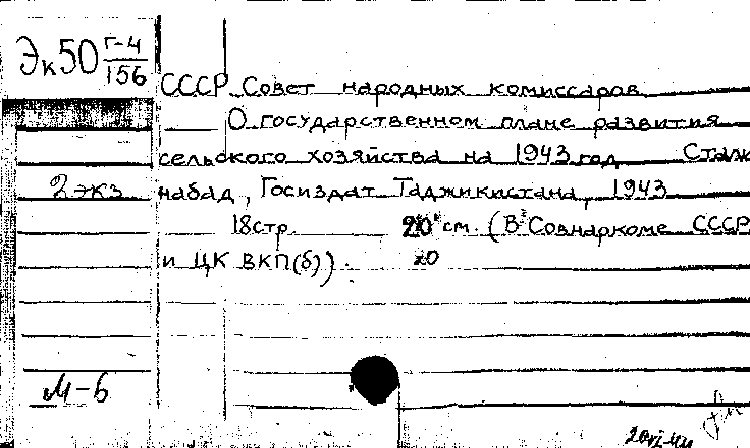 Эк50 Г-4
156
СССР Совет народных комиссаров
О государственном плане развития
сельского хозяйства на 1943 год Стали
2 экз набад, Госиздат Таджикистана, 1943
18 стр. 20 см. (В Совнаркоме СССР
и ЦК ВКП(б)). 20
М-Б